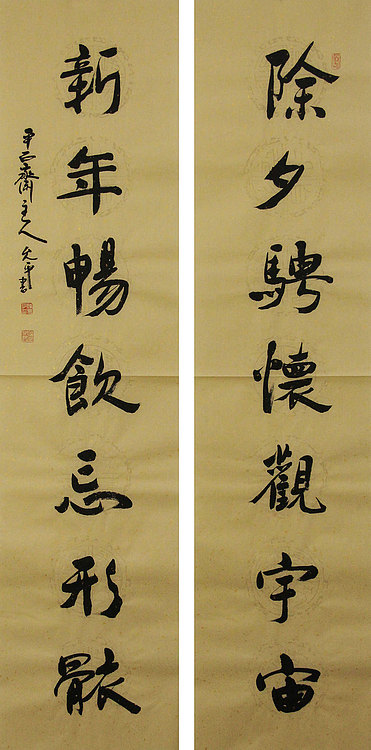 除夕騁懷觀宇宙
新年暢飲忘形骸
平正齋主人允平書